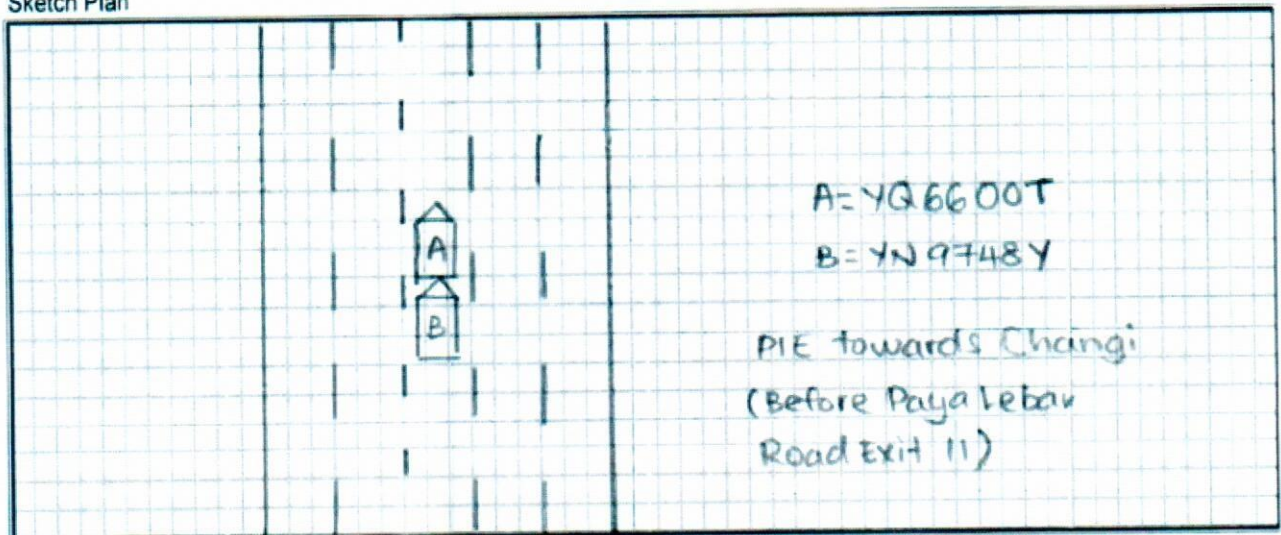 Sketch Plan
A
B
A=YQ6600T
B=YN9748Y
PIE towards Changi
(Before Paya Lebar
Road Exit 11)